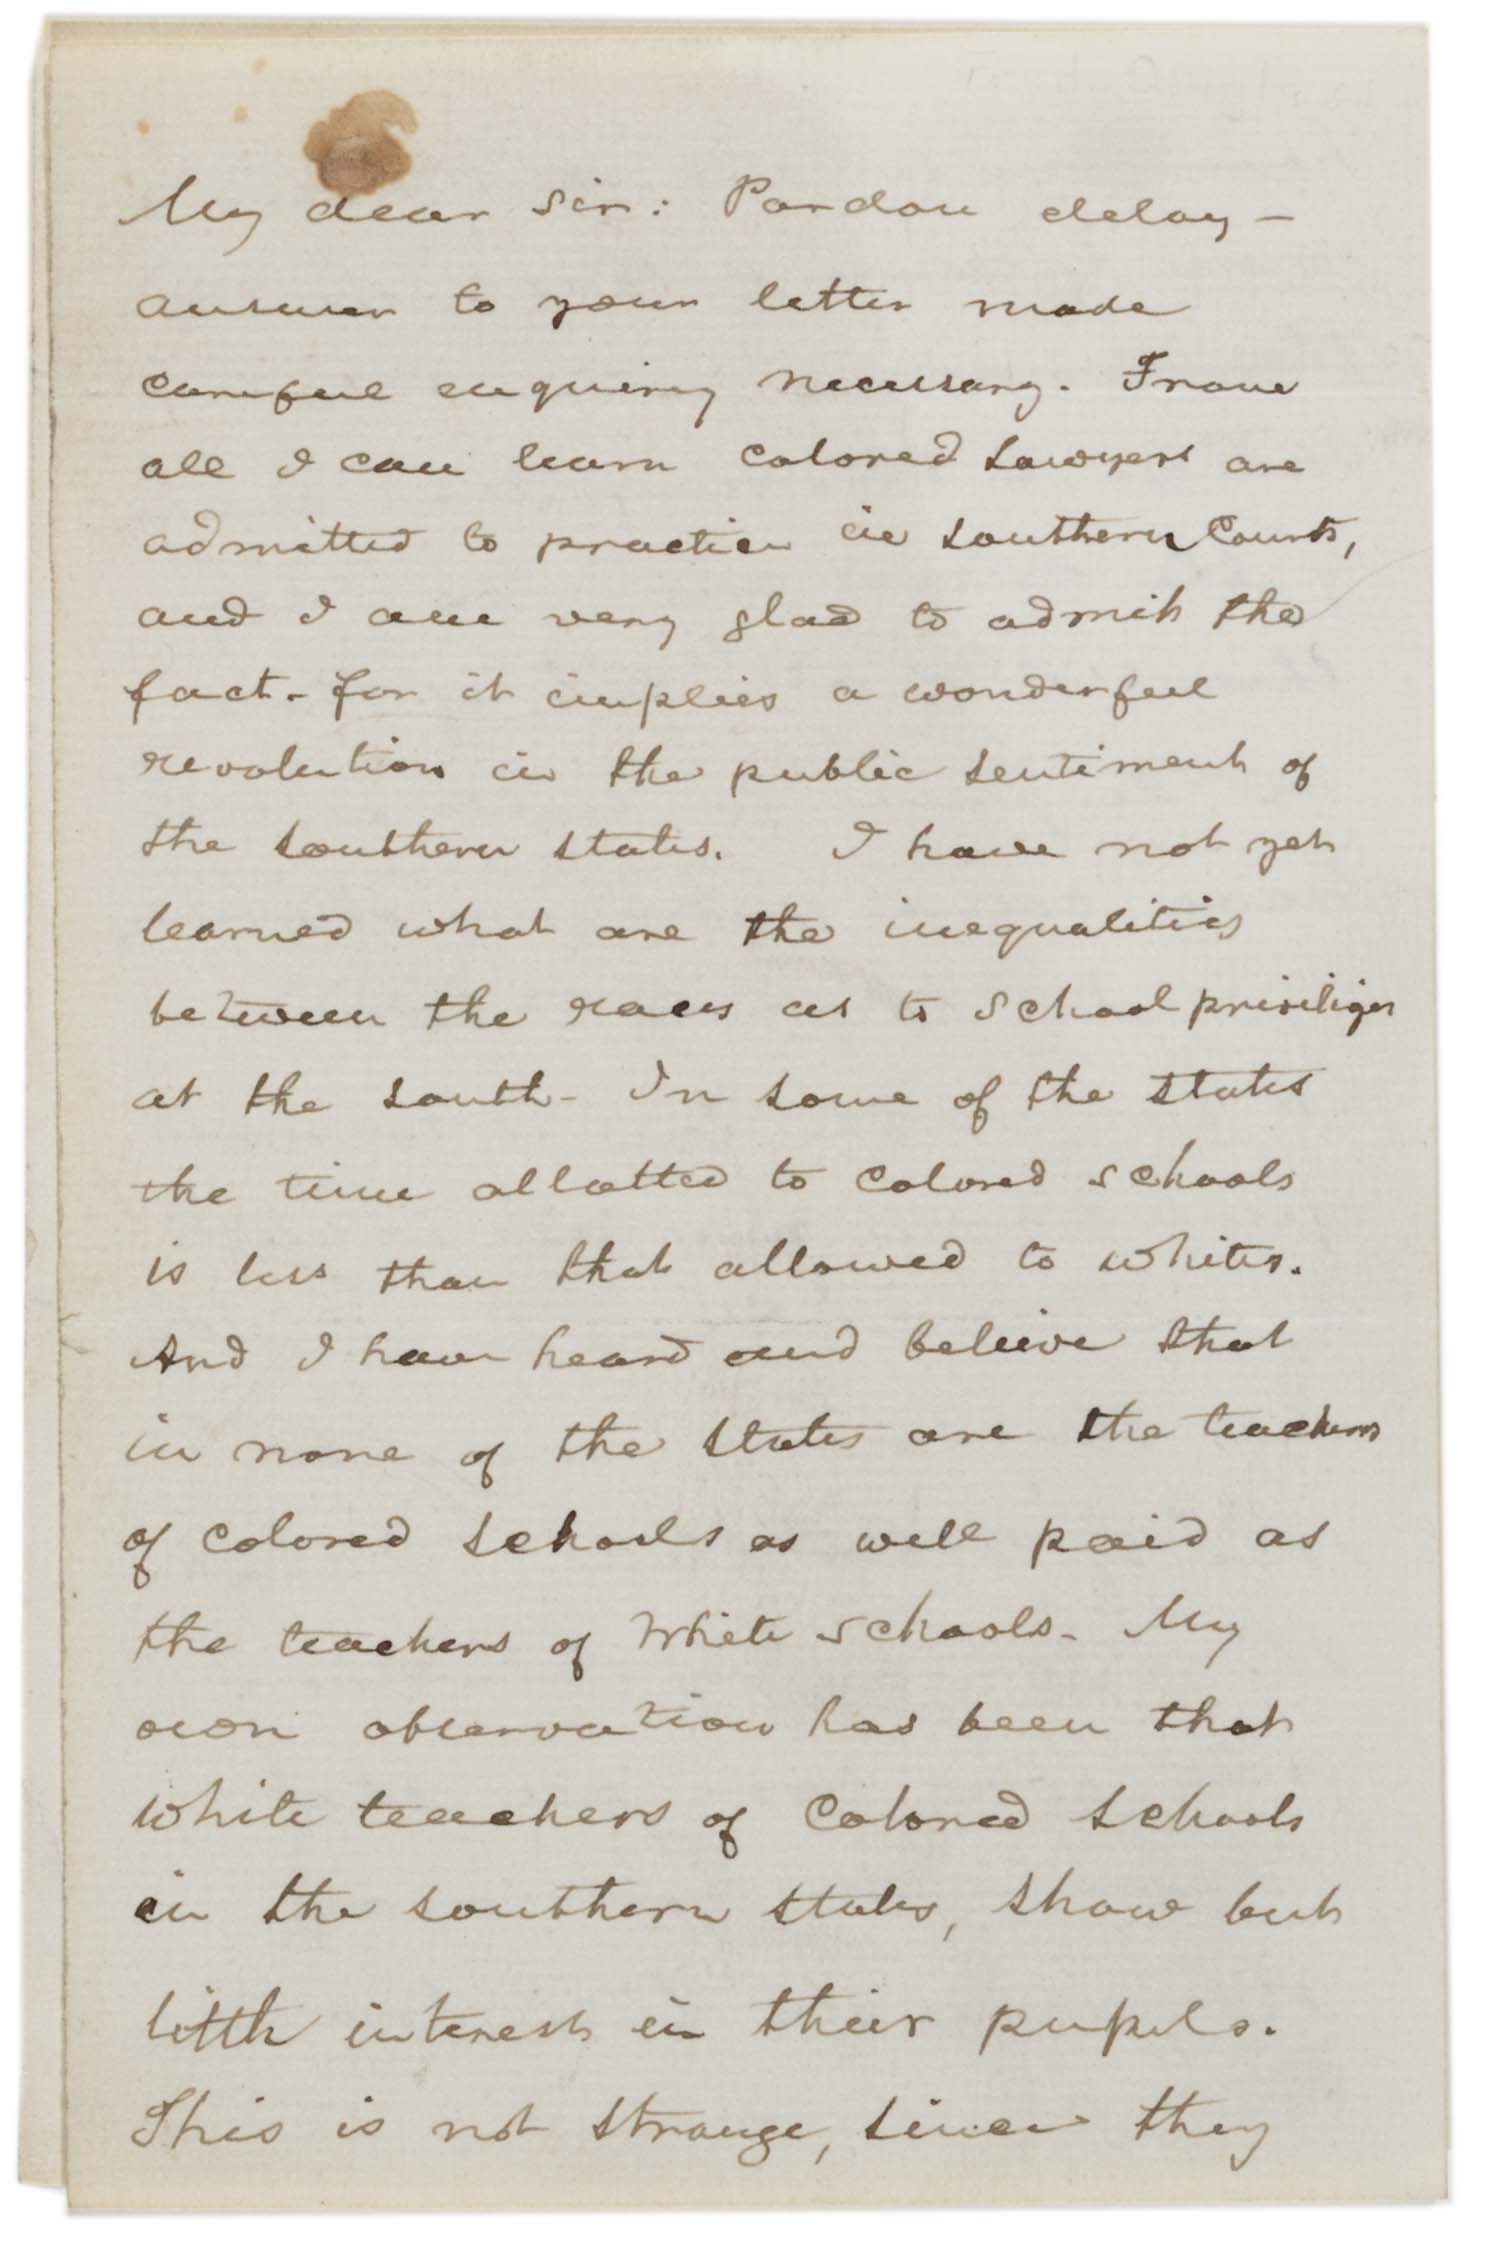 My dear Sir: Pardon delay —
answer to your letter made
careful enquiry necessary. From
all I can learn colored Lawyers are
admitted to practice in Southern Courts,
and I am very glad to admit the
fact - for it implies a wonderful
revolution in the public sentiment of
the Southern States. I have not yet
learned what are the inequalities
between the races as to School priviliges
at the South - In some of the States
the time allotted to colored schools
is less than that allowed to whites.
And I have heard and believe that
in none of the States are the teachers
of colored Schools as well paid as
the teachers of White schools - My
own observation has been that
White teachers of Colored Schools
in the Southern States, show but
little interest in their pupils.
This is not strange, since they